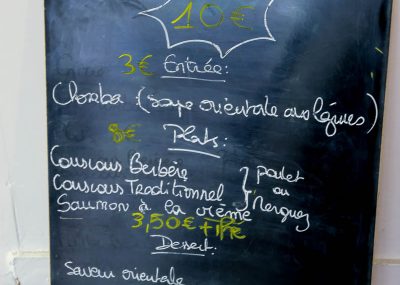 10€
3€ Entrée:
Chorba: (soupe orientale aux légumes)
8€ Plats:
Couscous Berbère
Couscous Traditionnel } poulet ou Merguez
Saumon à la crème
3,50€ + thé
Dessert:
Saveur orientale